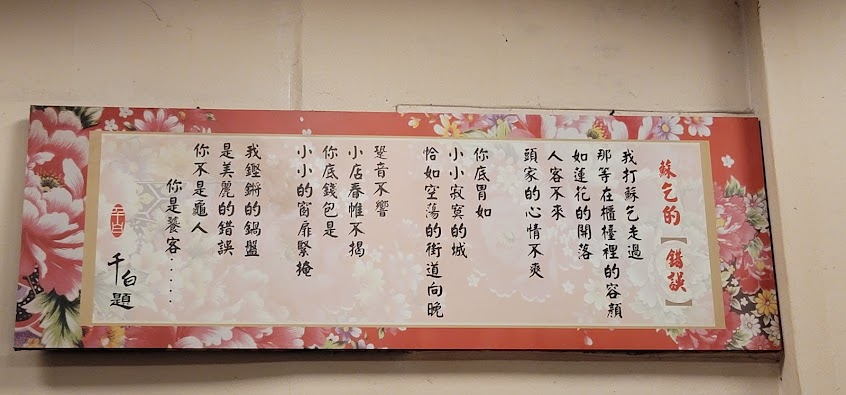 蘇乞的【錯誤】
我打蘇乞走過
那等在櫃檯裡的容顏
如蓮花的開落
人客不來
頭家的心情不爽
你底胃如
小小寂寞的城
恰如空蕩的街道向晚
跫音不響
小店春帷不揭
你底錢包是
小小的窗扉緊掩
我鏗鏘的鍋盤
是美麗的錯誤
你不是龜人
你是饕客‥‥
千白題
千白